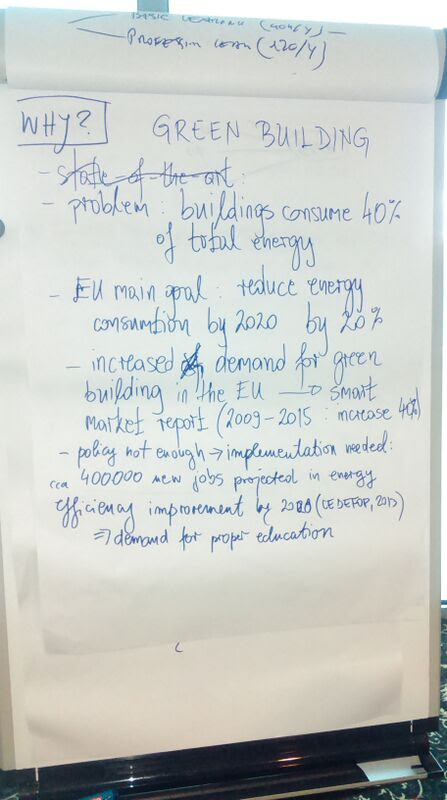 BASIC LEARNING (40h/Y)
PROFESSION LEARN (120/Y)
WHY?
GREEN BUILDING
- state of the art:
- problem: buildings consume 40%
of total energy
- EU main goal: reduce energy
consumtion by 2020 by 20%
- increased demand for green
building in the EU → smart
market report (2009-2015: increase 40%)
- policy not enough → implementation needed:
cca 400000 new jobs projected in energy
efficiency improvement by 2020 (CEDEFOP, 2013)
⇒ demand for proper education